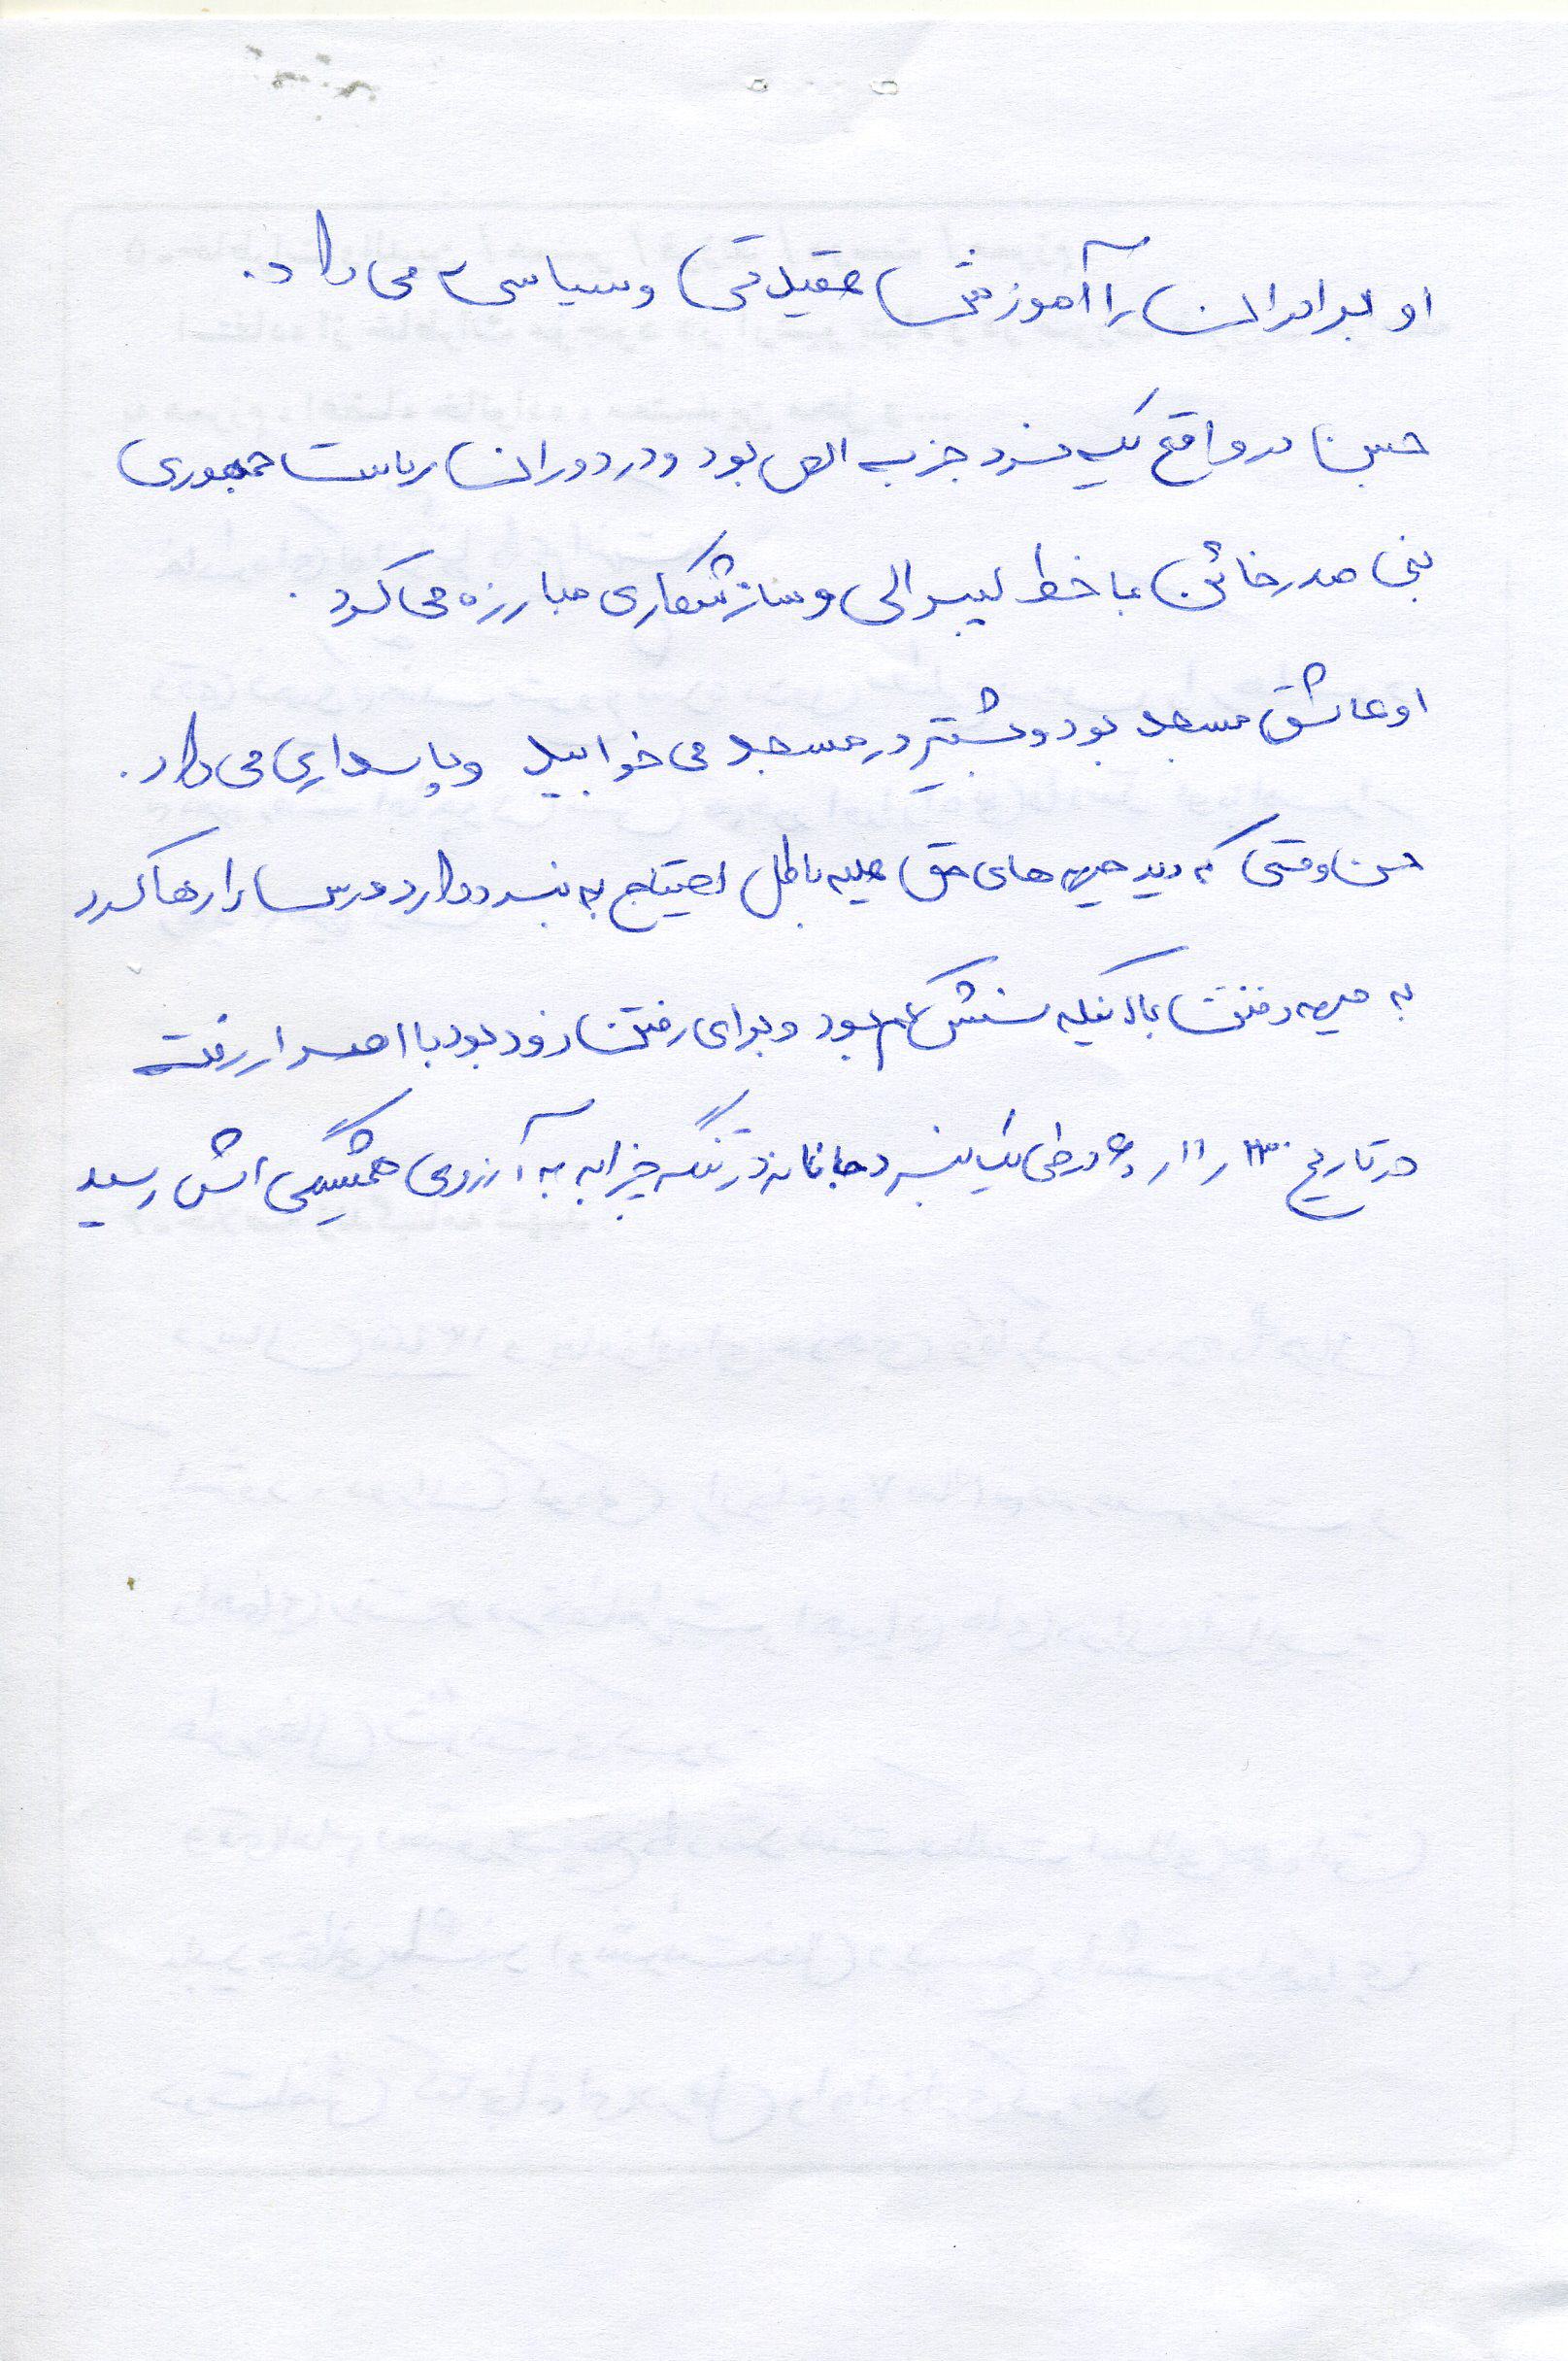 او برادران را آموزش عقیدتی و سیاسی می داد.
حسن در واقع یک فرد حزب الهی بود و در دوران ریاست جمهوری
بنی صدر خائن با خط لیبرالی و سازشکاری مبارزه می کرد.
او عاشق مسجد بود و بیشتر در مسجد می خوابید و پاسداری می داد.
حسن وقتی که دید جبهه های حق علیه باطل احتیاج به نبرد دارد درس را رها کرد
به جبهه رفت با اینکه سنش کم بود و برای رفتن زود بود با اصرار رفت
در تاریخ در طی یک نبرد جانانه در تنگه چزابه به آرزوی همیشگی اش رسید